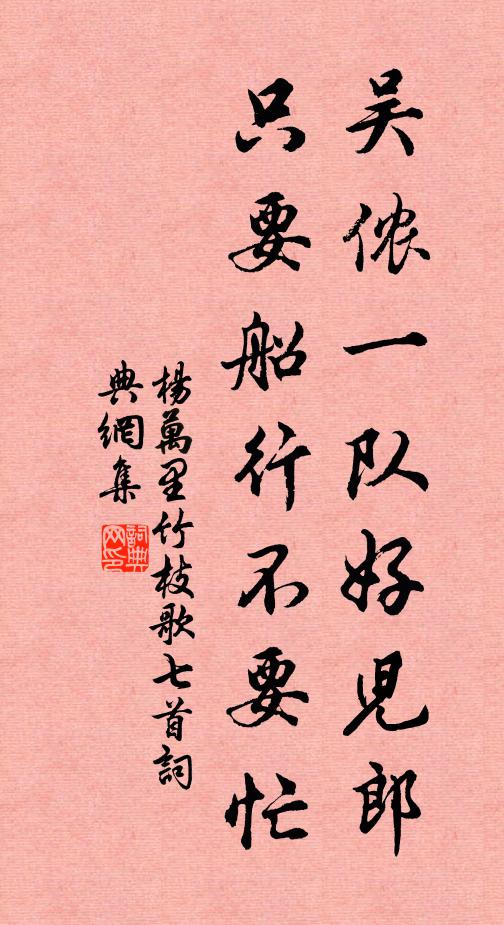 吴侬一队好児郎
只要船行不要忙
楊萬里竹枝歌七首詞
典網集
詞典网印